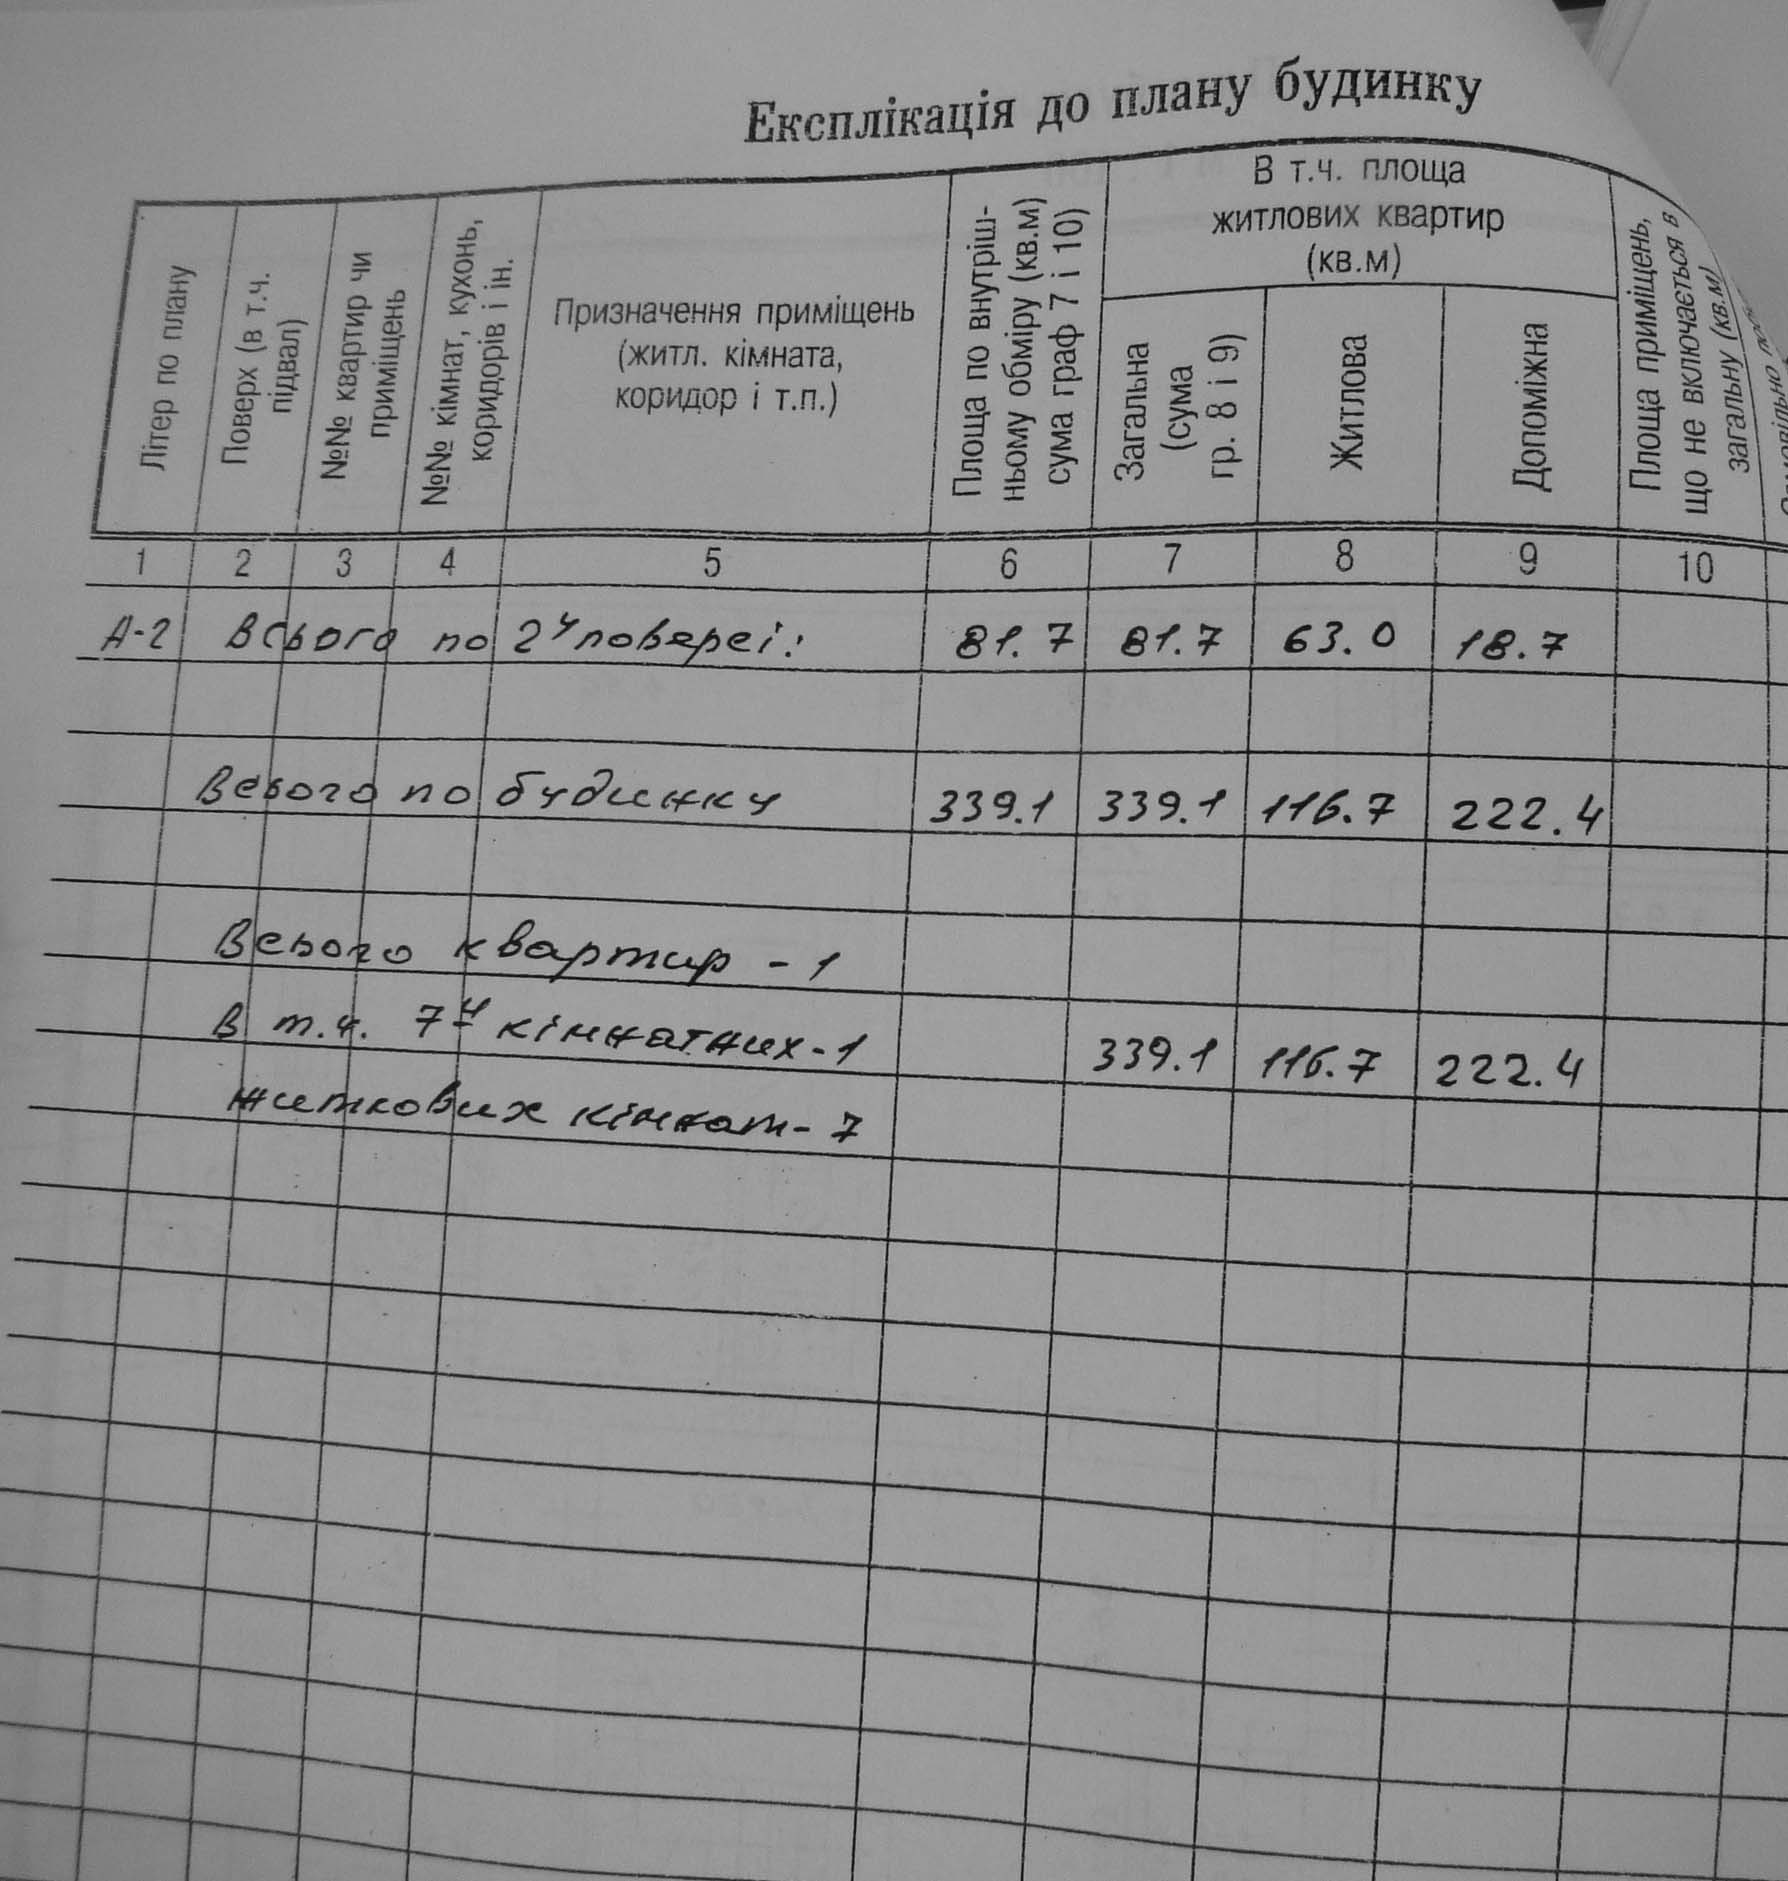 Експлікація до плану будинку
Літер по плану
Поверх (в т.ч. підвал)
№№ квартир чи приміщень
№№ кімнат, кухонь, коридорів і ін.
Призначення приміщень
(житл. кімната,
коридор і т.п.)
Площа по внутріш-
ньому обміру (кв.м)
сума граф 7 і 10)
В т.ч. площа
житлових квартир
(кв.м)
Загальна
(сума
гр. 8 і 9)
Житлова
Допоміжна
Площа приміщень,
що не включається в
загальну (кв.м)
1 2 3 4 5 6 7 8 9 10
А-2 Всього по 2у поверсі: 81.7 81.7 63.0 18.7
Всього по будинку 339.1 339.1 116.7 222.4
Всього квартир - 1
В т.ч. 7и кімнатних - 1 339.1 116.7 222.4
житлових кімнат - 7